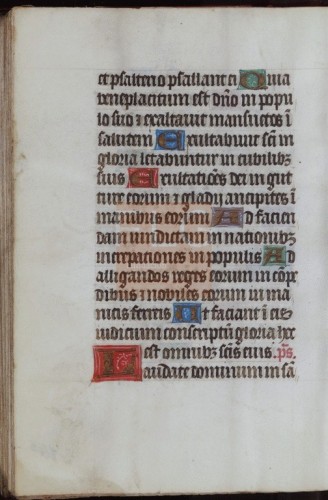 et psalterio psallant ei Quia
beneplacitum est dño in popu
lo suo & exaltauit mansuetos ī
salutem Exultabunt scī in
gloria letabuntur in cubilibꝫ
suis Exultatiões dei in gut
ture eorum & gladii ancipites ī
manibus eorum Ad facien
dam uindictam in nationibꝫ
increpationes in populis Ad
alligandos reges eorum in cōpe
dibus ⁊ nobiles eorum in ma
nicis ferreis Ut faciant ī eis
iudicium conscriptū gloria hec
est omnibꝫ scīs eius. ps̄.
Laudate dominum in sā